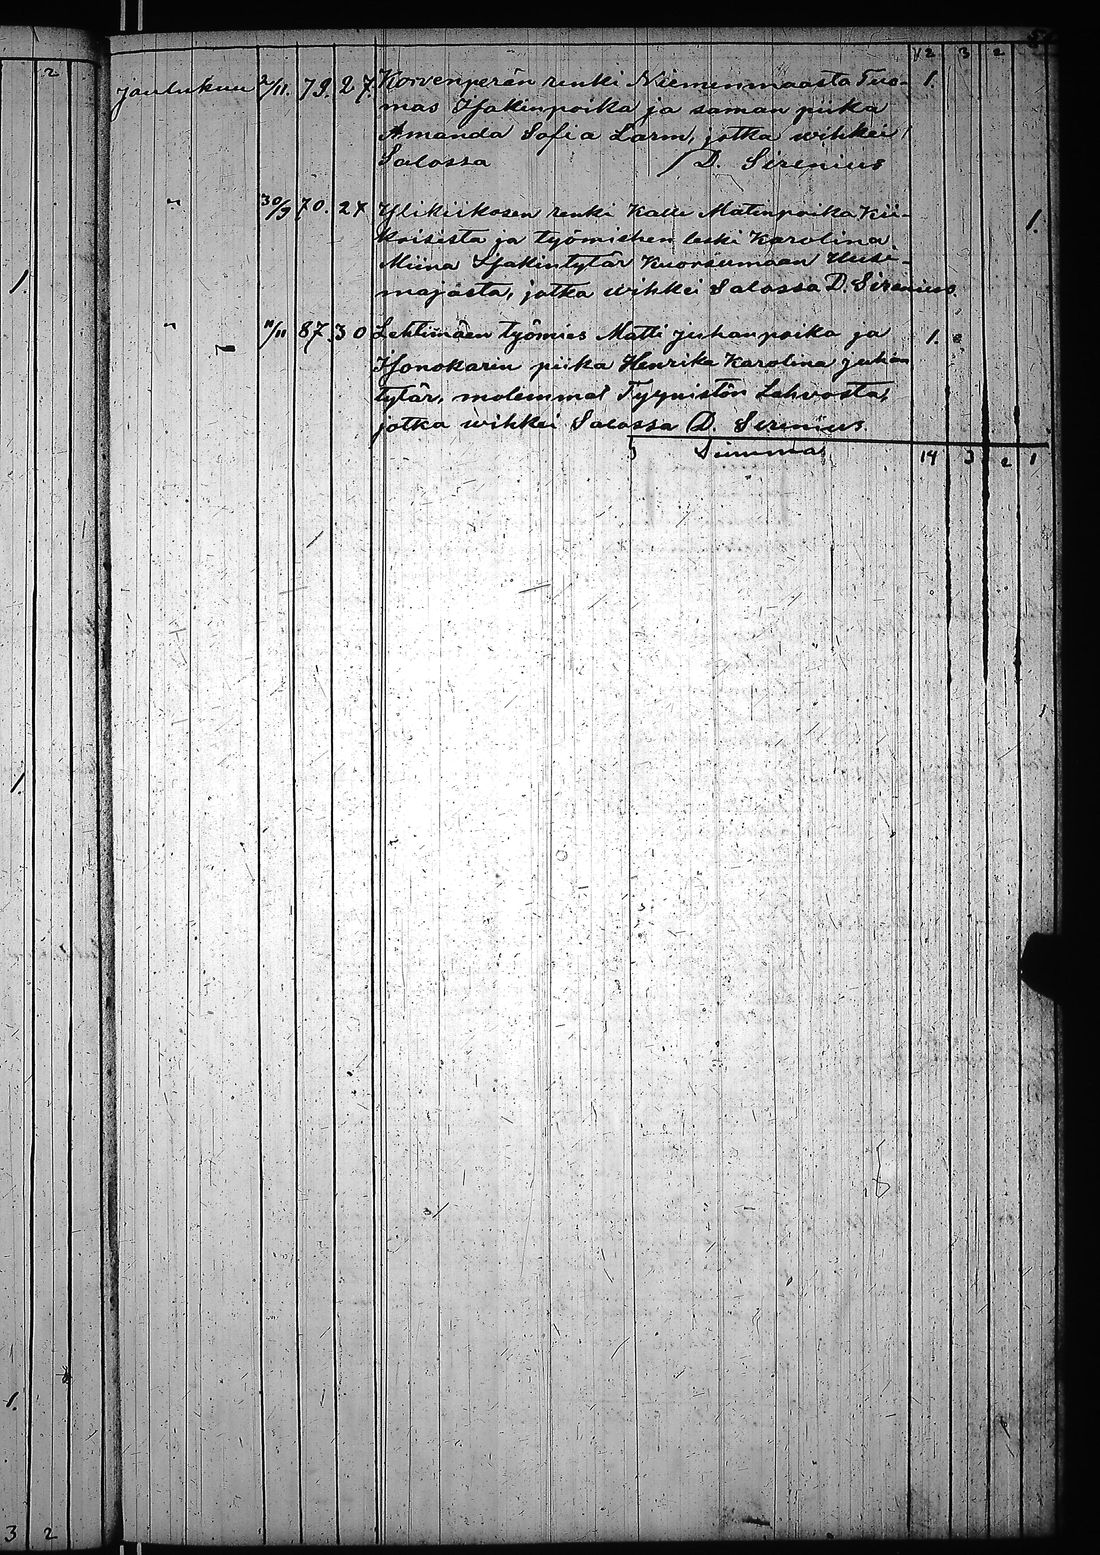 2
12 3 2
Joulukuu 2/11. 79. 27. Korvenperän renki Niemenmaasta Tuo- 1.
mas Isakinpoika ja saman piika
Amanda Sofia Larm, jotka wihkei
Salossa / D. Sirenius
" 30/9 70. 27 Ylikiikosen renki Kalle Matinpoika Kii- 1.
koisista ja työmiehen leski Karolina
Miina Isakintytär Kuorsumaan Uusi-
majasta, jotka wihkei Salossa D. Sirenius.
1.
" 11/11 87. 30 Lehtimäen työmies Matti Juhanpoika ja 1.
Honokarin piika Henrika Karolina Juhan
tytär, molemmat Tyynistön Lahvosta,
jotka wihkei Salossa D. Sirenius.
Summa 14 3 2 1
1.
1.
3 2